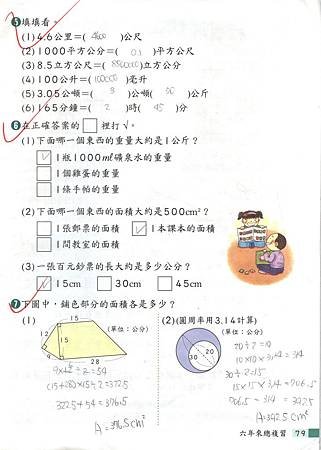 5 填填看。
(1) 4.6公里=( 4600 )公尺
(2) 1000平方公分=( 0.1 )平方公尺
(3) 8.5立方公尺=( 8500000 )立方公分
(4) 100公升=( 100000 )毫升
(5) 3.05公噸=( 3 )公噸( 50 )公斤
(6) 165分鐘=( 2 )時( 45 )分
6 在正確答案的□裡打√。
(1) 下面哪一個東西的重量大約是1公斤?
☑ 1瓶1000ml礦泉水的重量
□ 1個雞蛋的重量
□ 1條手帕的重量
(2) 下面哪一個東西的面積大約是500cm²?
□ 1張郵票的面積 ☑ 1本課本的面積
□ 1間教室的面積
(3) 一張百元鈔票的長大約是多少公分?
☑ 15cm □ 30cm □ 45cm
7 下圖中,鋪色部分的面積各是多少?
(1)
(單位:公分)
15
12
15
9
28
9×12÷2=54
(15+28)×15÷2=322.5
322.5+54=376.5
A=376.5cm²
(2) (圓周率用3.14計算)
(單位:公分)
30
20
20÷2=10
10×10×3.14=314
30÷2=15
15×15×3.14=706.5
706.5-314=392.5
A=392.5cm²
六年來總複習 79